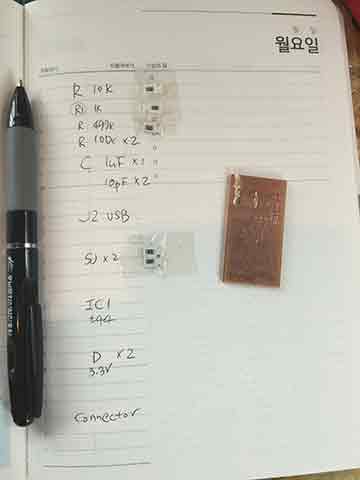 월 일
월요일
R 10K
R1 1K
R 499k
R 100k x2
C 1uF x2
10pF x2
J2 USB
SJ x2
IC1
t44
D x2
3.3V
connector